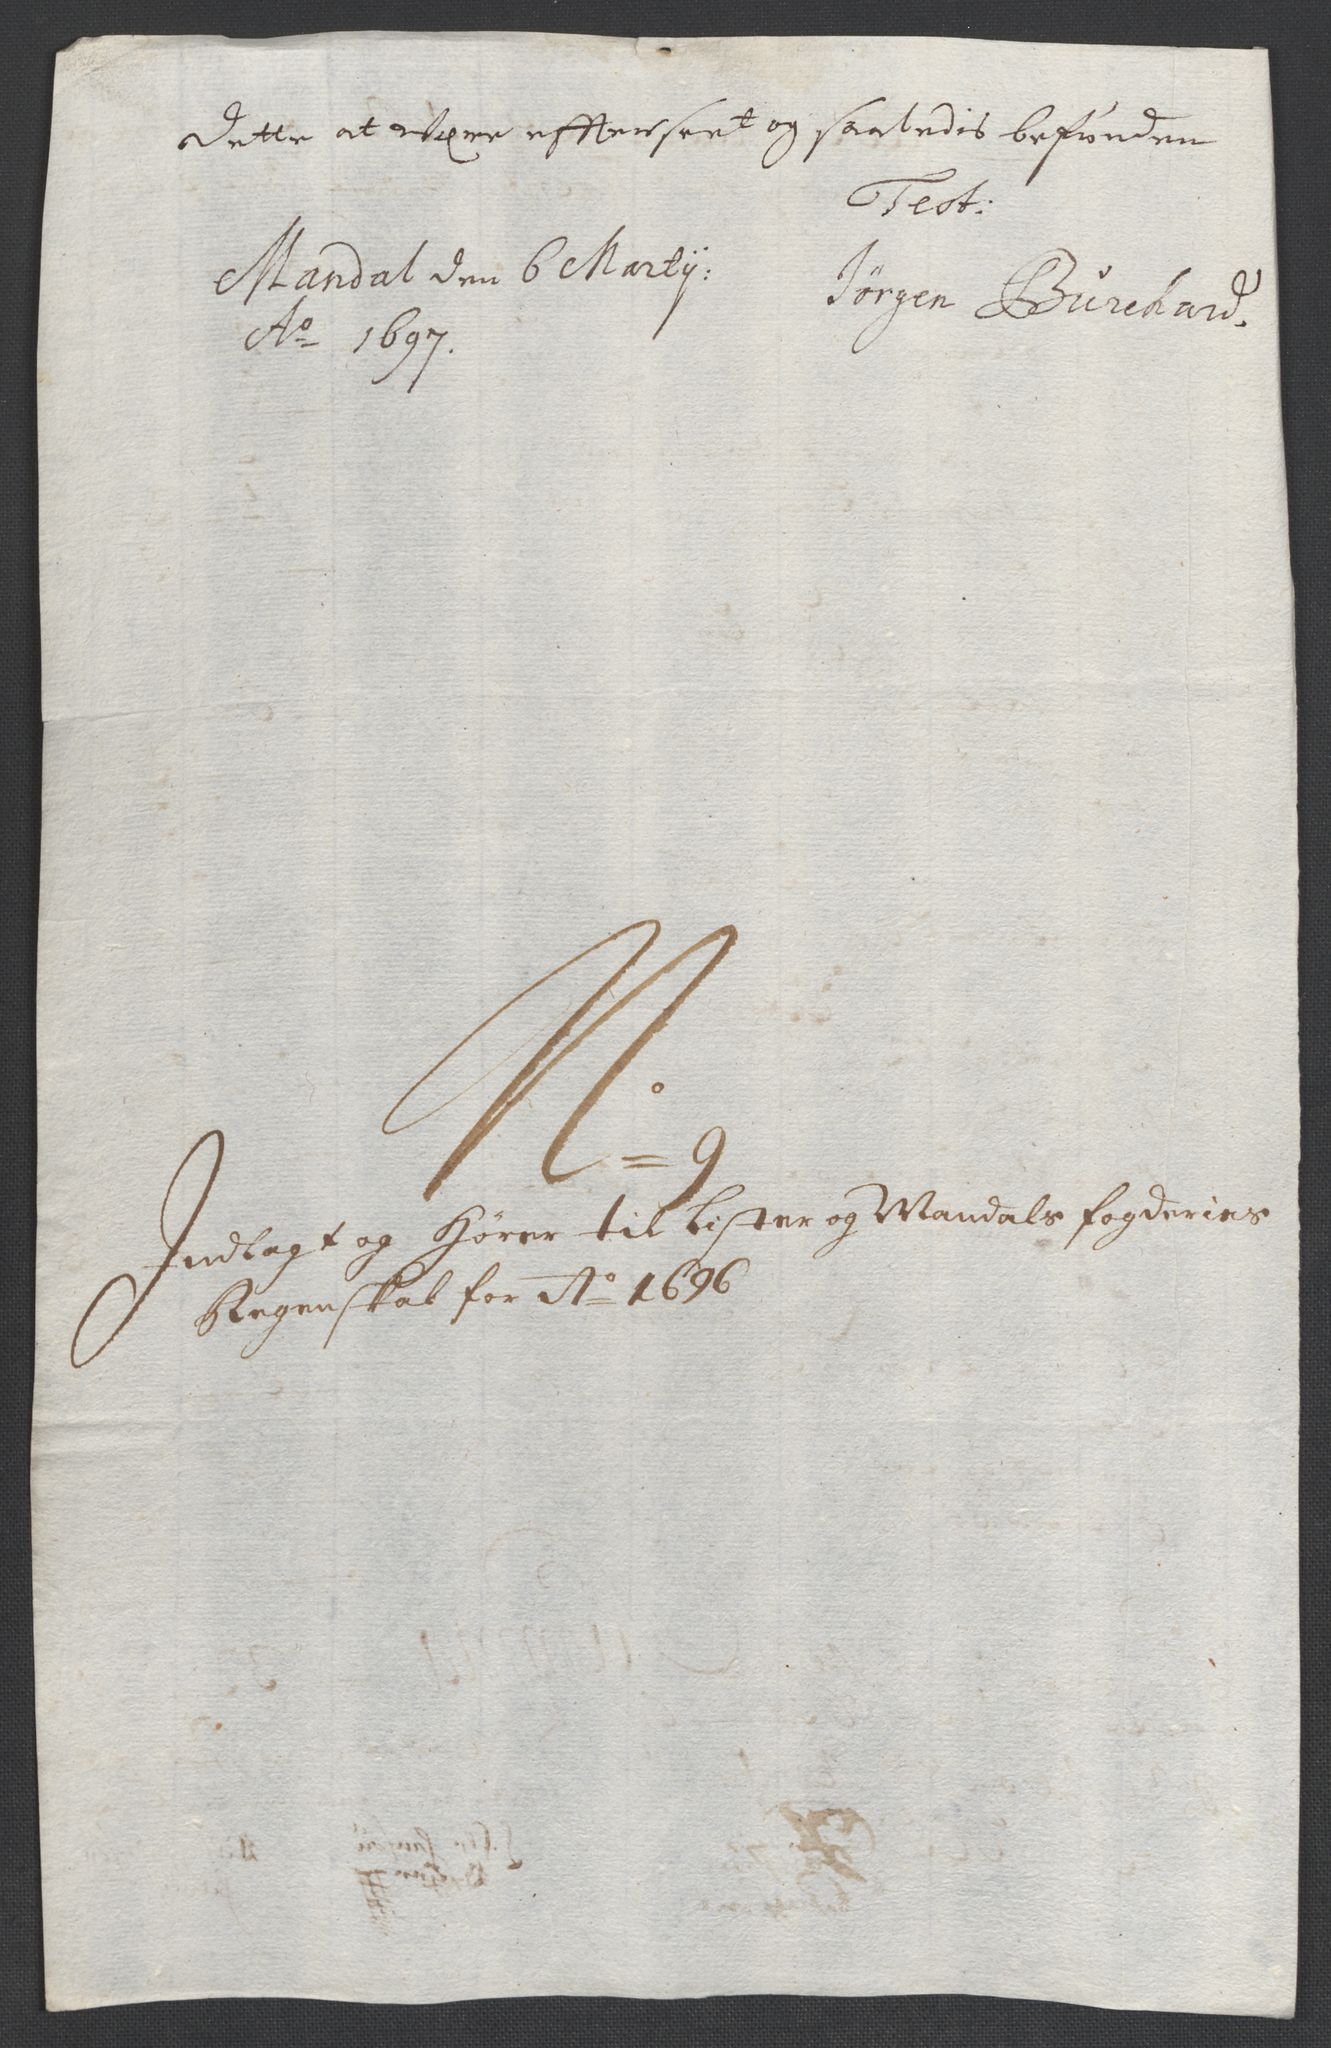 Dette at were effterseet og saaledis befunden
Test:
Mandal den 6 Martij:
Jörgen Burchard.
Ao 1697.
No = 9
Indlagt og Hører til Lister og Mandals fogderies
Regenskab for Ao 1696